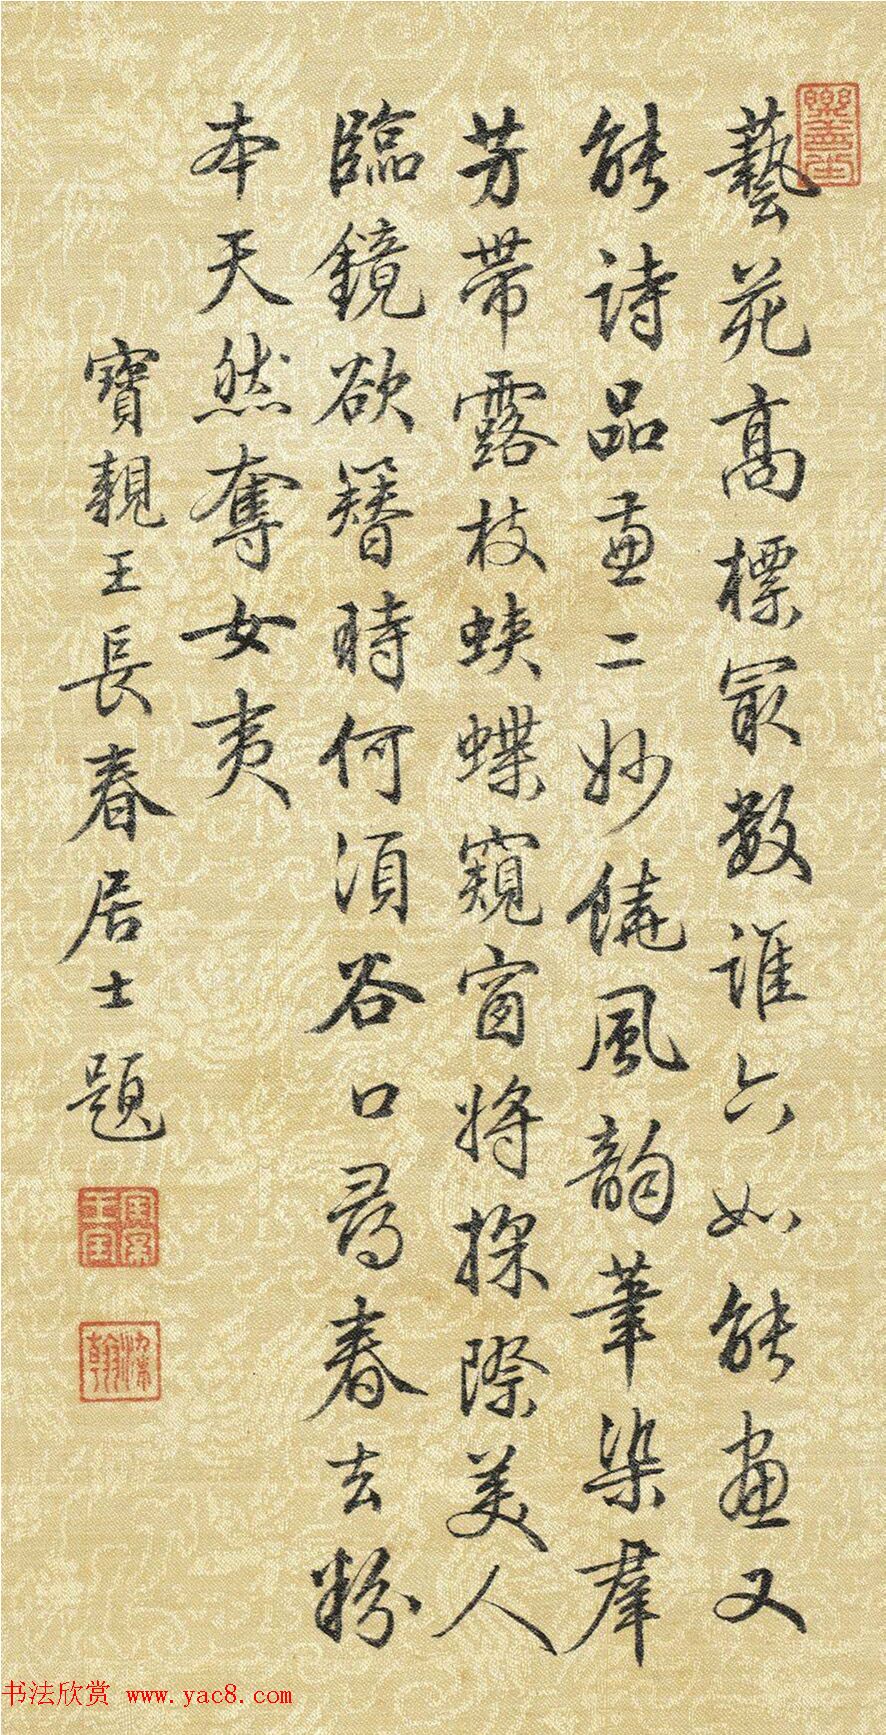 藝苑高標冣數誰六如能畫又
能詩品兼二妙饒風韻筆染羣
芳帶露枝蛱蝶窺窗將探際美人
臨鏡欲簪時何須谷口尋春去粉
本天然奪女夷
寶親王長春居士題
樂善堂
寶親王寶
书法欣赏 www.yac8.com